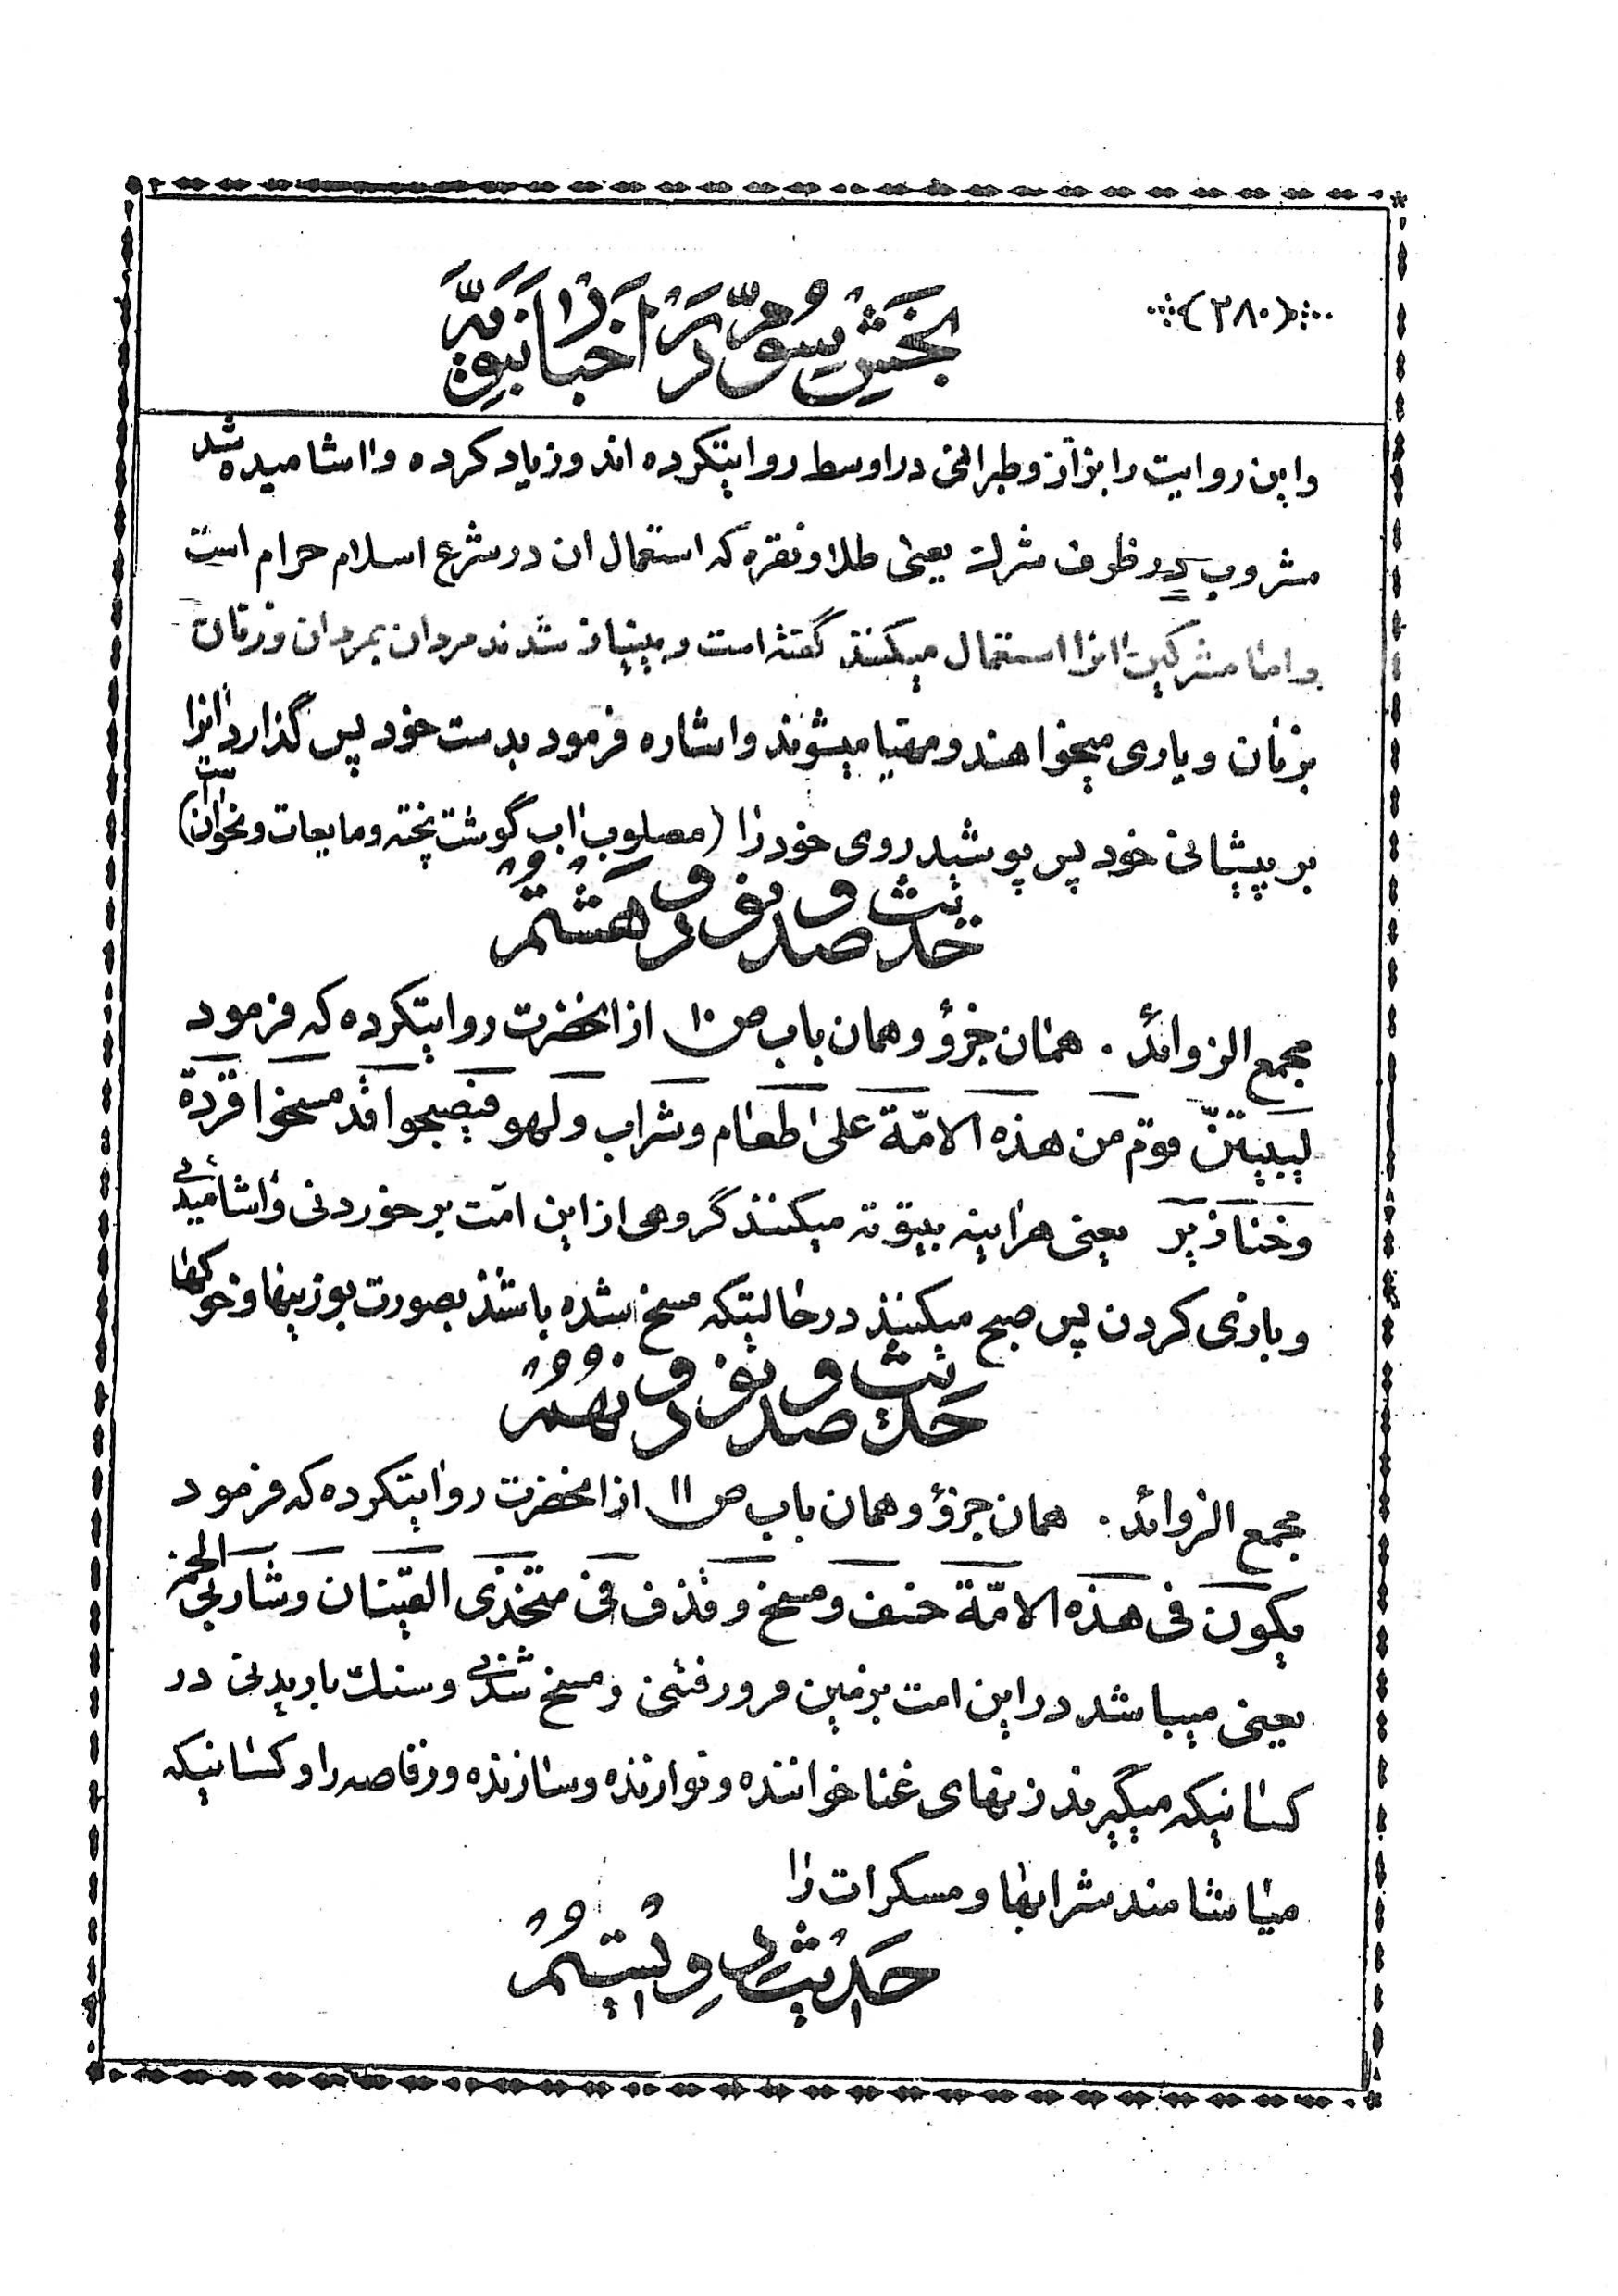 (۲۸۰)
بخش سوم در اخبار نبویه
واین روایت را بزاز وطبرانی در اوسط روایتکرده اند وزیاد کرده واشامیده شد
مشروب در ظروف شرک یعنی طلا ونقره که استعمال ان در شرع اسلام حرام است
واما مشرکین انرا استعمال میکنند گفته است و بینیاز شدند مردان بمردان وزنان
بزنان ویاری میخواهند ومهیا میشوند واشاره فرمود بدست خود پس گذارد انرا
بر پیشانی خود پس پوشید روی خود را (مصلوب اب گوشت پخته ومایعات ونخوان است)
حدیث صد و نود و هشتم
مجمع الزوائد . همان جزؤ وهمان باب ص ۱۰ از انحضرت روایتکرده که فرمود
لیبیتنّ قوم من هذه الامّة علی طعام وشراب ولهو فیصبحوا قد مسخوا قردة
وخنازیر یعنی هراینه بیتوته میکنند گروهی از این امت بر خوردنی واشامیدنی
وبازی کردن پس صبح میکنند در حالیتکه مسخ شده باشند بصورت بوزینها وخوکها
حدیث صد و نود و نهم
مجمع الزوائد . همان جزؤ وهمان باب ص ۱۱ از انحضرت روایتکرده که فرمود
یکون فی هذه الامّة خسف ومسخ وقذف فی متخذی القینان وشاربی الخمر
یعنی میباشد در این امت بزمین فرورفتنی ومسخ شدنی وسنک باریدنی در
کسانیکه میگیرند زنهای غنا خواننده ونوازنده وسازنده ورقاصه را وکسانیکه
میاشامند شرابها ومسکرات را
حدیث دویستم